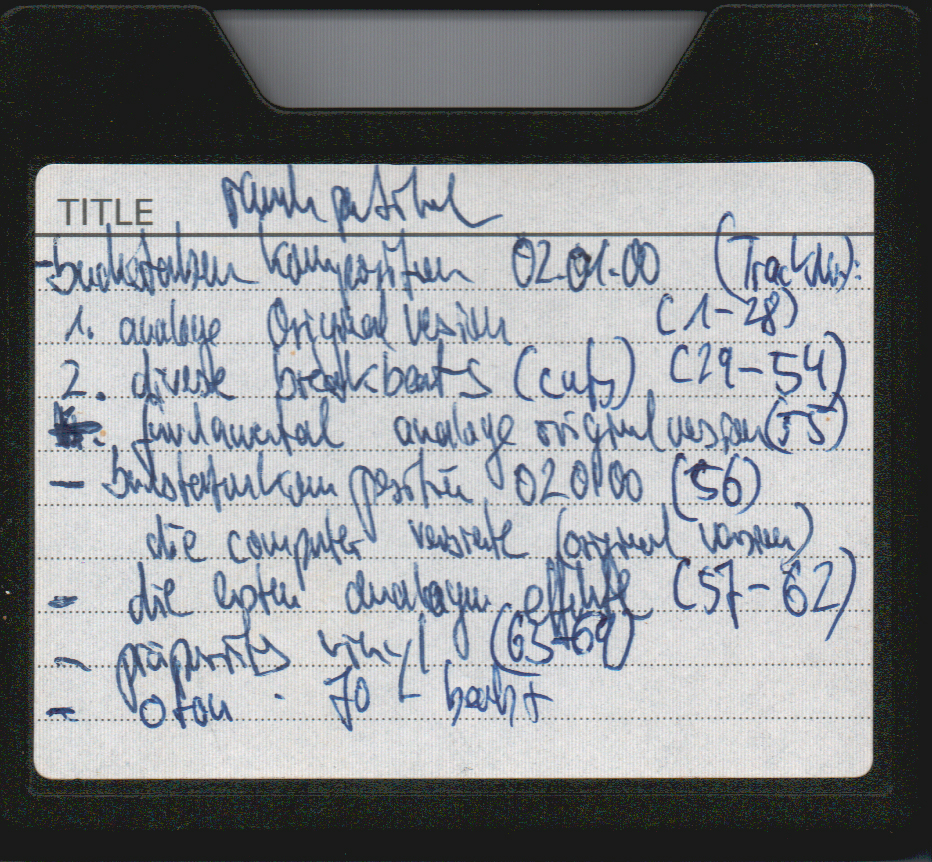 TITLE
- buchstaben komposition 02.01.00 (Track No):
1. analoge Original version (1-28)
2. diverse breakbeats (cuts) (29-54)
fundamental analoge original version (55)
- 020100 (56)
die computer version (original version)
- die ersten analogen effekte (57-62)
- präpariertes vinyl (63-69)
- Oton : 70 -